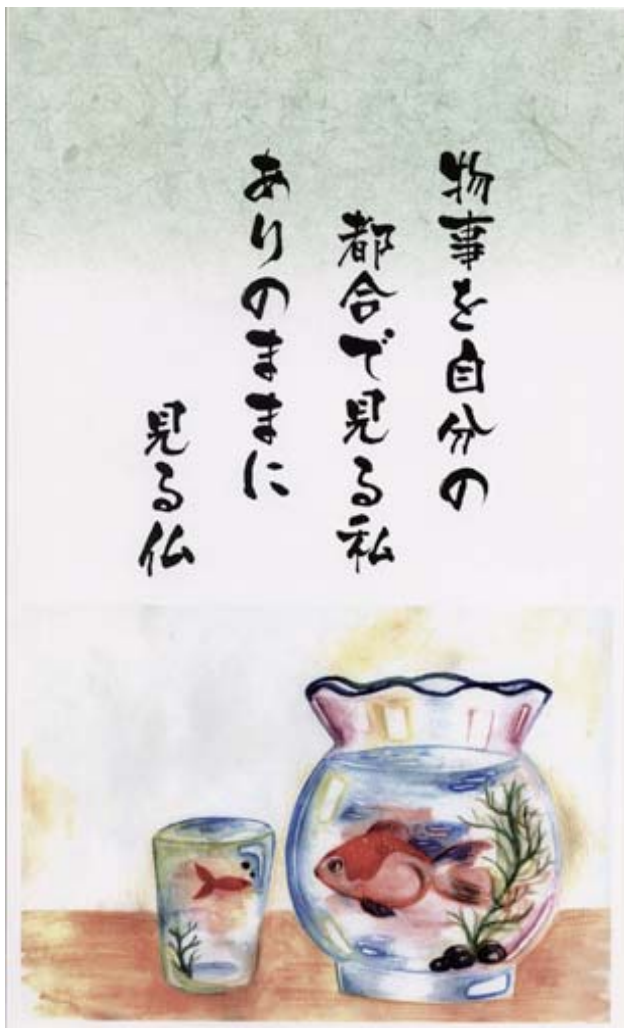 物事を自分の
都合で見る私
ありのままに
見る仏